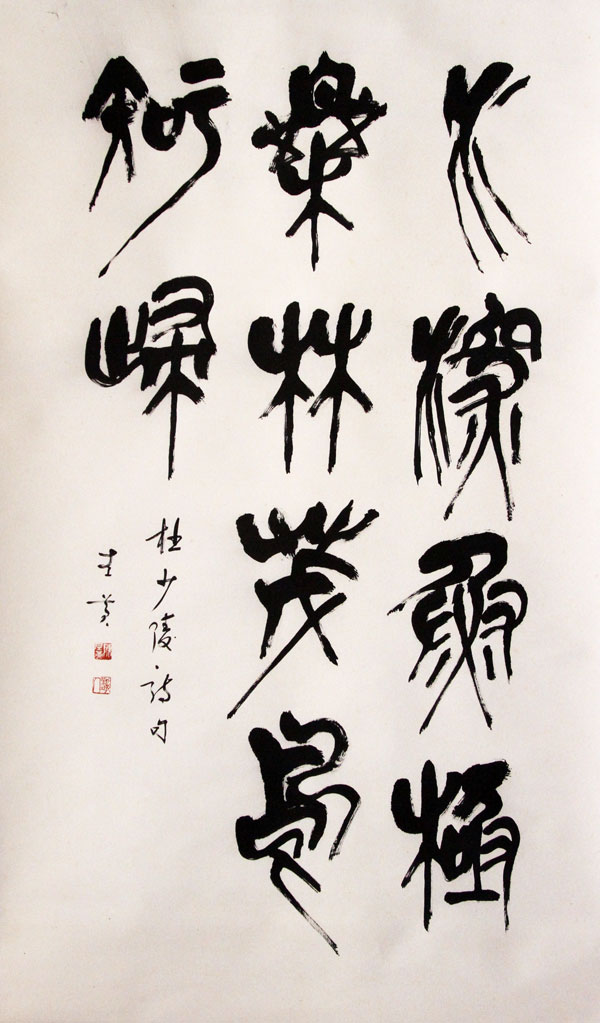 水深魚極
樂林茂鳥
知歸
杜少陵詩句